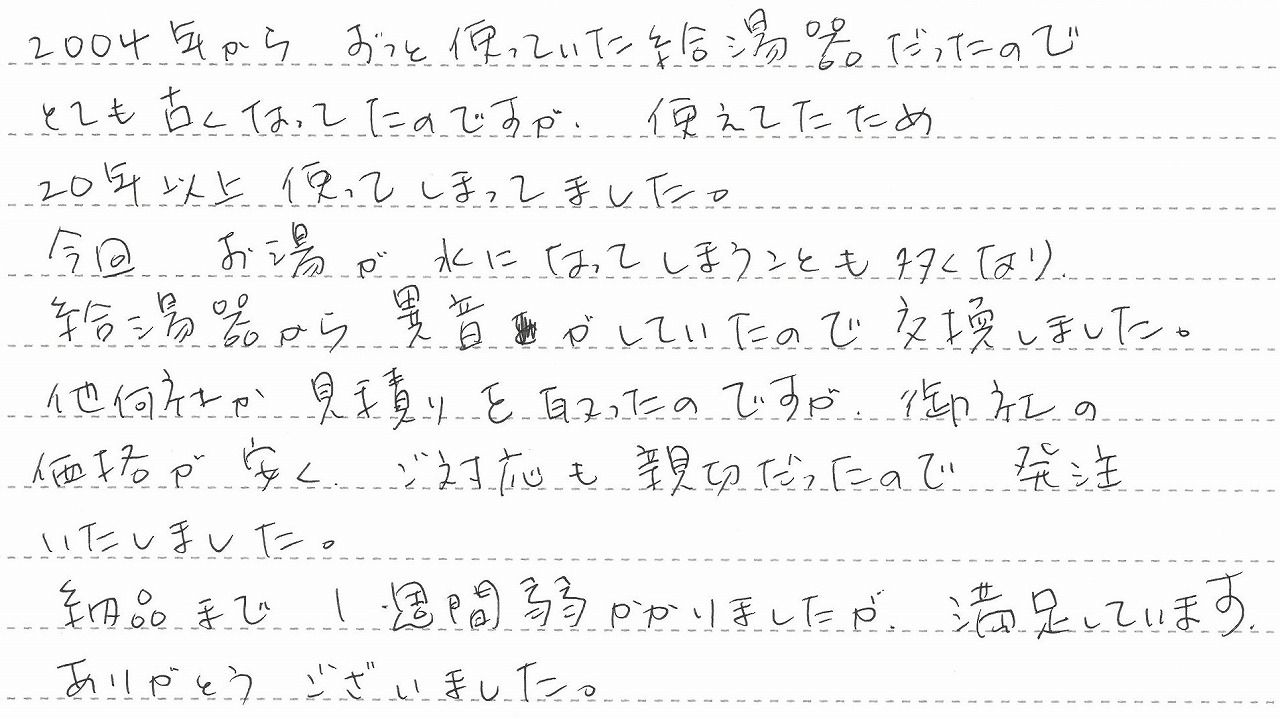 2004年から ずっと使っていた給湯器だったので
とても古くなってたのですが、使えてたため
20年以上使ってしまってました。
今回 お湯が水になってしまうことも多くなり、
給湯器から異音がしていたので交換しました。
他何社か見積りを取ったのですが、御社の
価格が安く、ご対応も親切だったので発注
いたしました。
納品まで1週間弱かかりましたが、満足しています。
ありがとうございました。